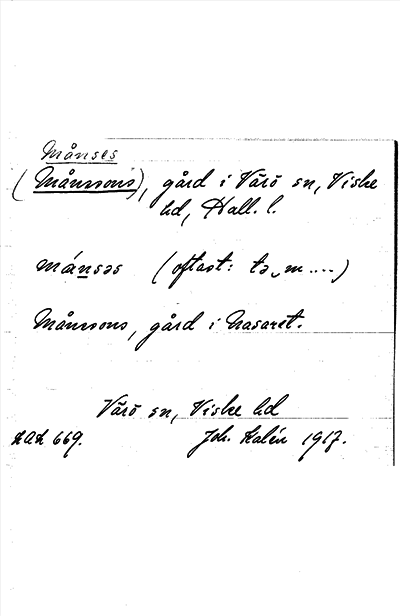 Månses
(Månssons), gård i Värö sn, Viske
hd, Hall. l.
mánsəs (oftast: tə‿m....)
Månssons, gård i Nasaret.
Värö sn, Viske hd
669. Joh. Kalén 1917.